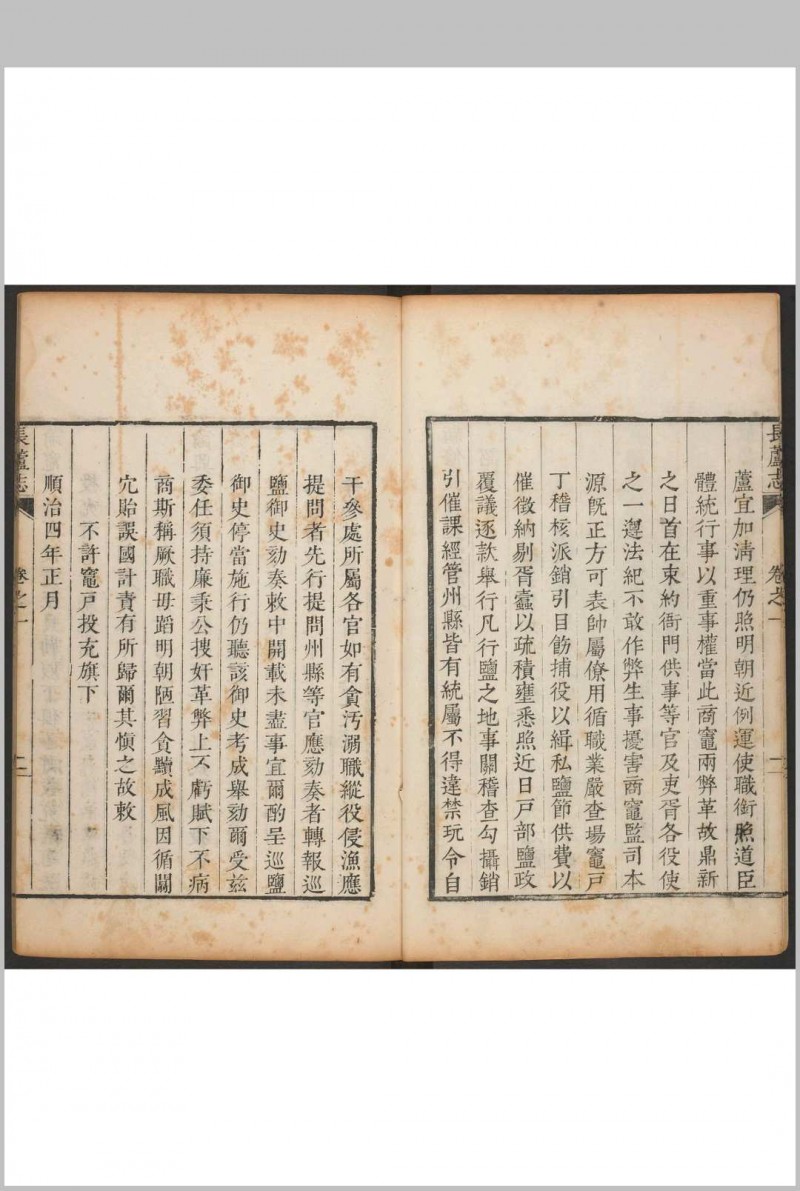 長蘆志
卷之一
二
蘆宜加清理仍照明朝近例運使職銜照道臣
體統行事以重事權當此商竈兩弊革故鼎新
之日首在束約衙門供事等官及吏胥各役使
之一遵法紀不敢作弊生事擾害商竈監司本
源旣正方可表帥屬僚用循職業嚴查場竈戸
丁稽核派銷引目飭捕役以緝私鹽節供費以
催徵納剔胥蠹以疏積壅悉照近日戸部鹽政
覆議逐款舉行凡行鹽之地事關稽查勾攝銷
引催課經管州縣皆有統屬不得違禁玩令自
干參處所屬各官如有貪汚溺職縱役侵漁應
提問者先行提問州縣等官應劾奏者轉報巡
鹽御史劾奏敕中開載未盡事宜爾酌呈巡鹽
御史停當施行仍聽該御史考成舉劾爾受兹
委任須持廉秉公搜奸革弊上不虧賦下不病
商斯稱厥職毋蹈明朝陋習貪黷成風因循闒
宂貽誤國計責有所歸爾其愼之故敕
不許竈戸投充旗下
順治四年正月
長蘆志
卷之一
二